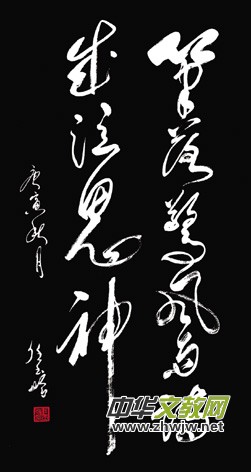 筆落驚風雨詩
成泣鬼神
庚寅秋月
中华文教网
www.zhwjw.net